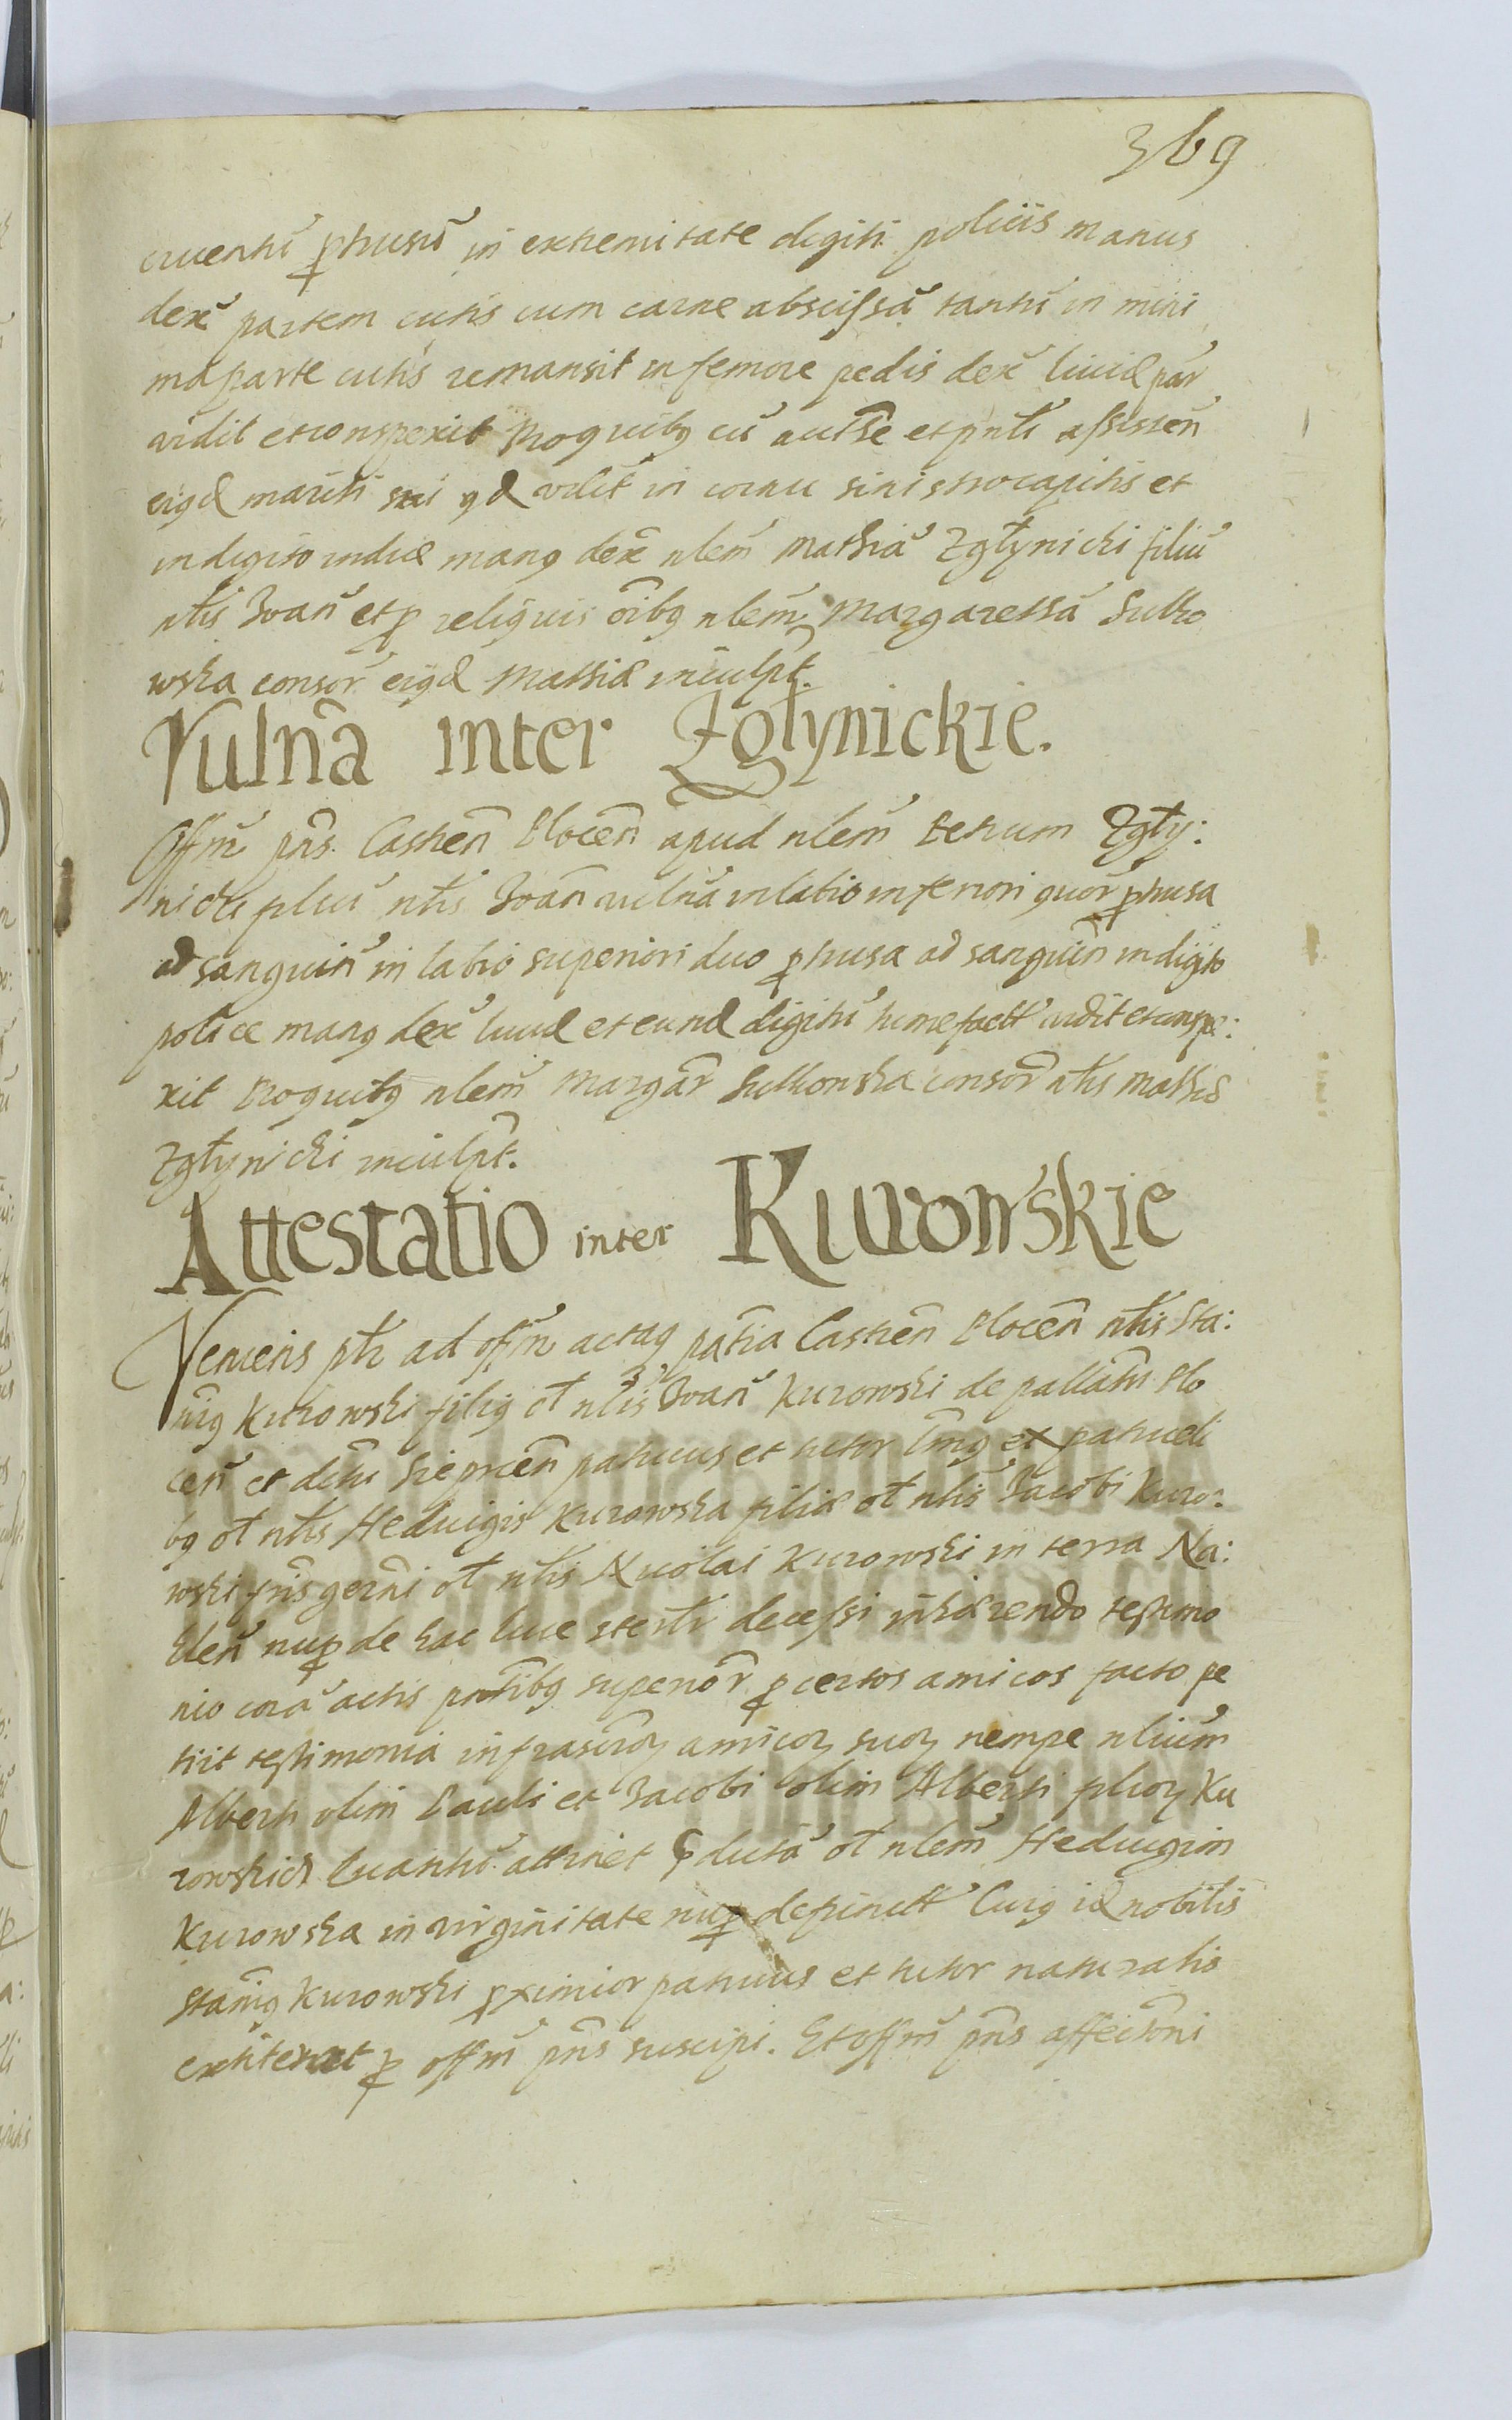 369
cruentũ ꝑtusũ in extremitate digiti policis manus
dex̃ partem cutis cum carne abscissã tantũ in mini
ma parte cutis remansit in femore pedis dex̃ livid par̃
vidit et conspexit Pro quibꝰ cũ
mariti sui qd vidit in cornu sinistro capitis et
in digito indice manꝰ dex̃ nlem̃ Mathiã Zgłynicki filiũ
nlis Joañ et ꝑ reliquis oĩbꝰ nlem̃ Margarethã Sulko
wska consor̃ eiꝰd Mathiæ inculpt.
Vulña inter Zgłynickie.
Offm̃ pñs Castreñ Ploceñ apud nlem̃ Petrum Zgły:
nicki filiũ nlis Joañ vulña in labio inferiori quor̃ ꝑtusa
ad sanguiñ in labio superiori duo ꝑtusa ad sanguiñ in digito
police manꝰ dex̃ livid et eund digitũ tumefactũ vidit et conspe:
xit Pro quibꝰ nlem̃ Margar̃ Sulkowska consor̃ nlis Mathiæ
Zgłynicki inculpt.
Attestatio inter Kurowskie
Veniens ptr ad offm̃ actaꝗ pñtia Castreñ Ploceñ nlis Sta:
nisꝰ Kurowski filiꝰ oł nlis Joañ Kurowski de pallatũ Plo
ceñ et distũ Sieprceñ patruus et tutor et patrueli
bꝰ oł nlis Heduigis Kurowska filiæ oł nlis Jacobi Kuro:
wski frĩs gerñi oł nlis Nicolai Kurowski in terra Na:
kleñ nuꝑ de hac luce decessi inhærendo testimo
nio corã actis pñtibꝰ superior̃ ꝑ certos amicos facto pe
tiit testimonia infrascrõꝝ amicoꝝ suoꝝ nempe nlium̃
Alberti olim Pauli et Jacobi olim Alberti filioꝝ Ku
rowskich Quantũ attinet oł nlem̃ Heduigim
Kurowska in virginitate nuꝑ defunctã Cuiꝰ id nobilis
Stanisꝰ Kurowski ꝓximior patruus et tutor naturalis
extiterat ꝑ offm̃ pñs suscipi. Et offm̃ pñs affectõni